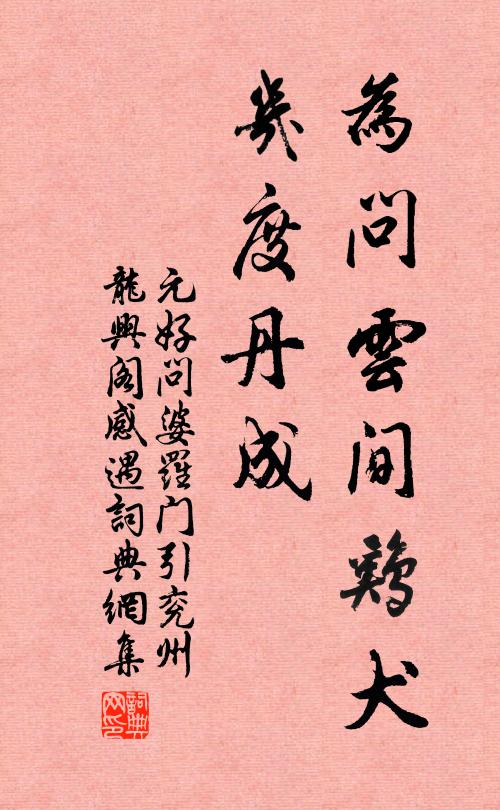 為問雲間鷄犬
幾度丹成
元好問婆羅门引兖州
龍興閣感遇詞典網集
詞典网印